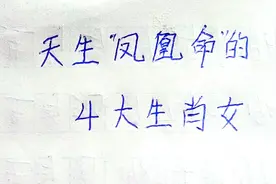 天生"凤凰命"的
4大生肖女